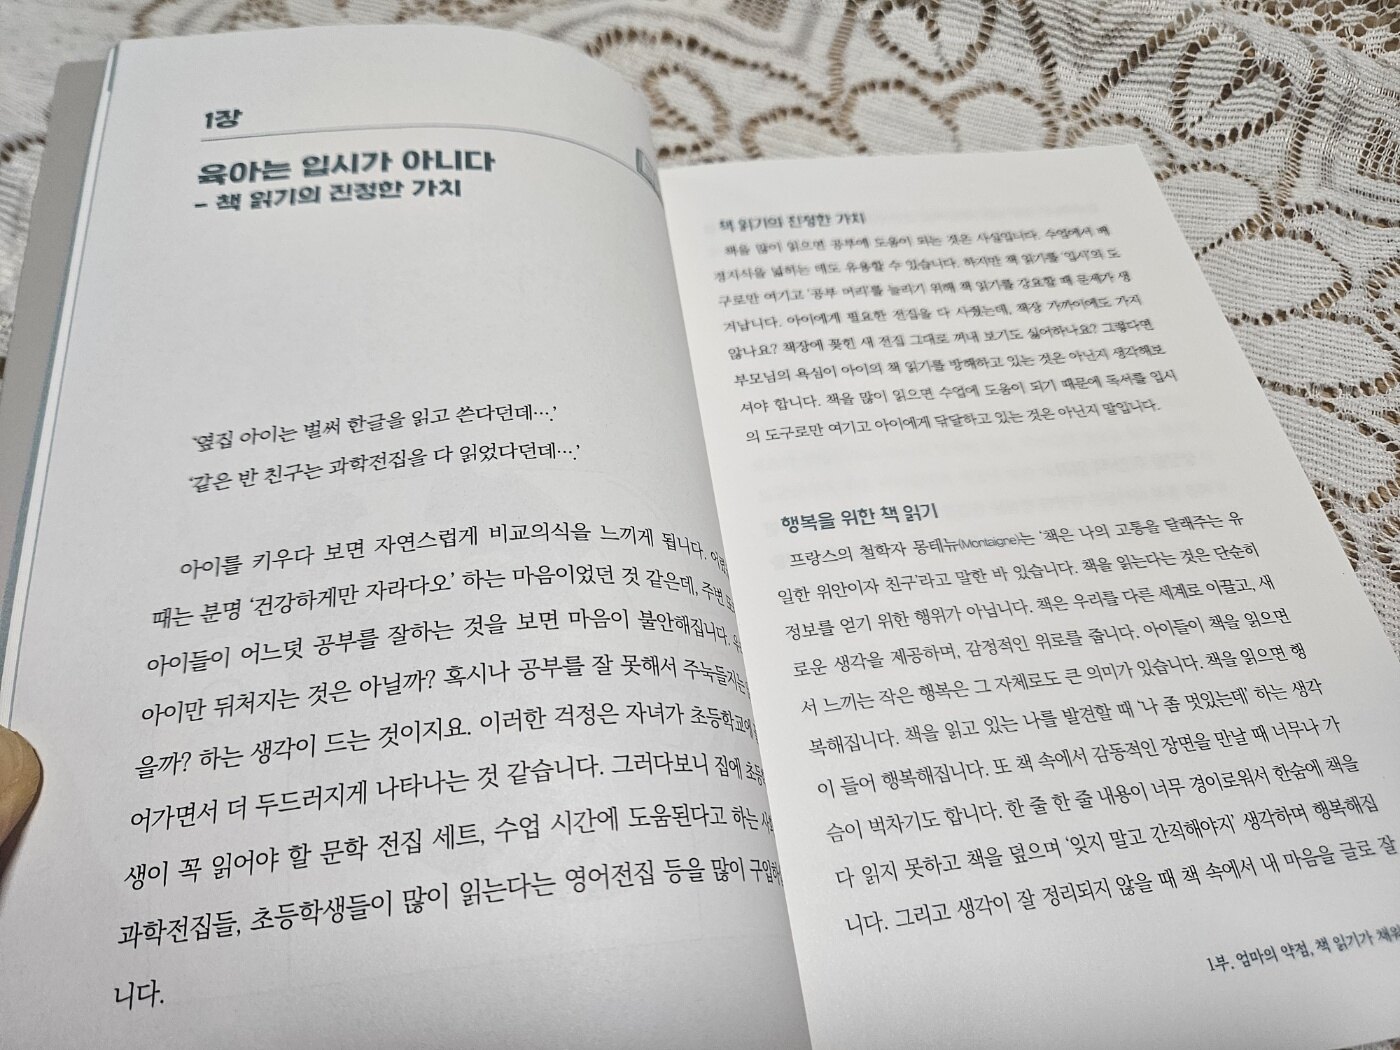 1장
육아는 입시가 아니다
- 책 읽기의 진정한 가치
‘옆집 아이는 벌써 한글을 읽고 쓴다던데…’
‘같은 반 친구는 과학전집을 다 읽었다던데…’
아이를 키우다 보면 자연스럽게 비교의식을 느끼게 됩니다.
때는 분명 ‘건강하게만 자라다오’ 하는 마음이었던 것 같은데, 주변
아이들이 어느덧 공부를 잘하는 것을 보면 마음이 불안해집니다.
아이만 뒤처지는 것은 아닐까? 혹시나 공부를 잘 못해서 주눅들지는
을까? 하는 생각이 드는 것이지요. 이러한 걱정은 자녀가 초등학교에
어가면서 더 두드러지게 나타나는 것 같습니다. 그러다보니 집에
생이 꼭 읽어야 할 문학 전집 세트, 수업 시간에 도움된다고 하는
과학전집들, 초등학생들이 많이 읽는다는 영어전집 등을 많이
니다.
책 읽기의 진정한 가치
책을 많이 읽으면 공부에 도움이 되는 것은 사실입니다. 수업에서 배
경지식을 넓히는 데도 유용할 수 있습니다. 하지만 책 읽기를 ‘입시’의 도
구로만 여기고 ‘공부 머리’를 늘리기 위해 책 읽기를 강요할 때 문제가 생
겨납니다. 아이에게 필요한 전집을 다 사줬는데, 책장 가까이에도 가지
않나요? 책장에 꽂힌 새 전집 그대로 꺼내 보기도 싫어하나요? 그렇다면
부모님의 욕심이 아이의 책 읽기를 방해하고 있는 것은 아닌지 생각해보
셔야 합니다. 책을 많이 읽으면 수업에 도움이 되기 때문에 독서를 입시
의 도구로만 여기고 아이에게 닦달하고 있는 것은 아닌지 말입니다.
행복을 위한 책 읽기
프랑스의 철학자 몽테뉴(Montaigne)는 ‘책은 나의 고통을 달래주는 유
일한 위안이자 친구’라고 말한 바 있습니다. 책을 읽는다는 것은 단순히
정보를 얻기 위한 행위가 아닙니다. 책은 우리를 다른 세계로 이끌고, 새
로운 생각을 제공하며, 감정적인 위로를 줍니다. 아이들이 책을 읽으면
서 느끼는 작은 행복은 그 자체로도 큰 의미가 있습니다. 책을 읽으면 행
복해집니다. 책을 읽고 있는 나를 발견할 때 ‘나 좀 멋있는데’ 하는 생각
이 들어 행복해집니다. 또 책 속에서 감동적인 장면을 만날 때 너무나 가
슴이 벅차기도 합니다. 한 줄 한 줄 내용이 너무 경이로워서 한숨에 책을
다 읽지 못하고 책을 덮으며 ‘잊지 말고 간직해야지’ 생각하며 행복해집
니다. 그리고 생각이 잘 정리되지 않을 때 책 속에서 내 마음을 글로 잘
1부. 엄마의 약점, 책 읽기가